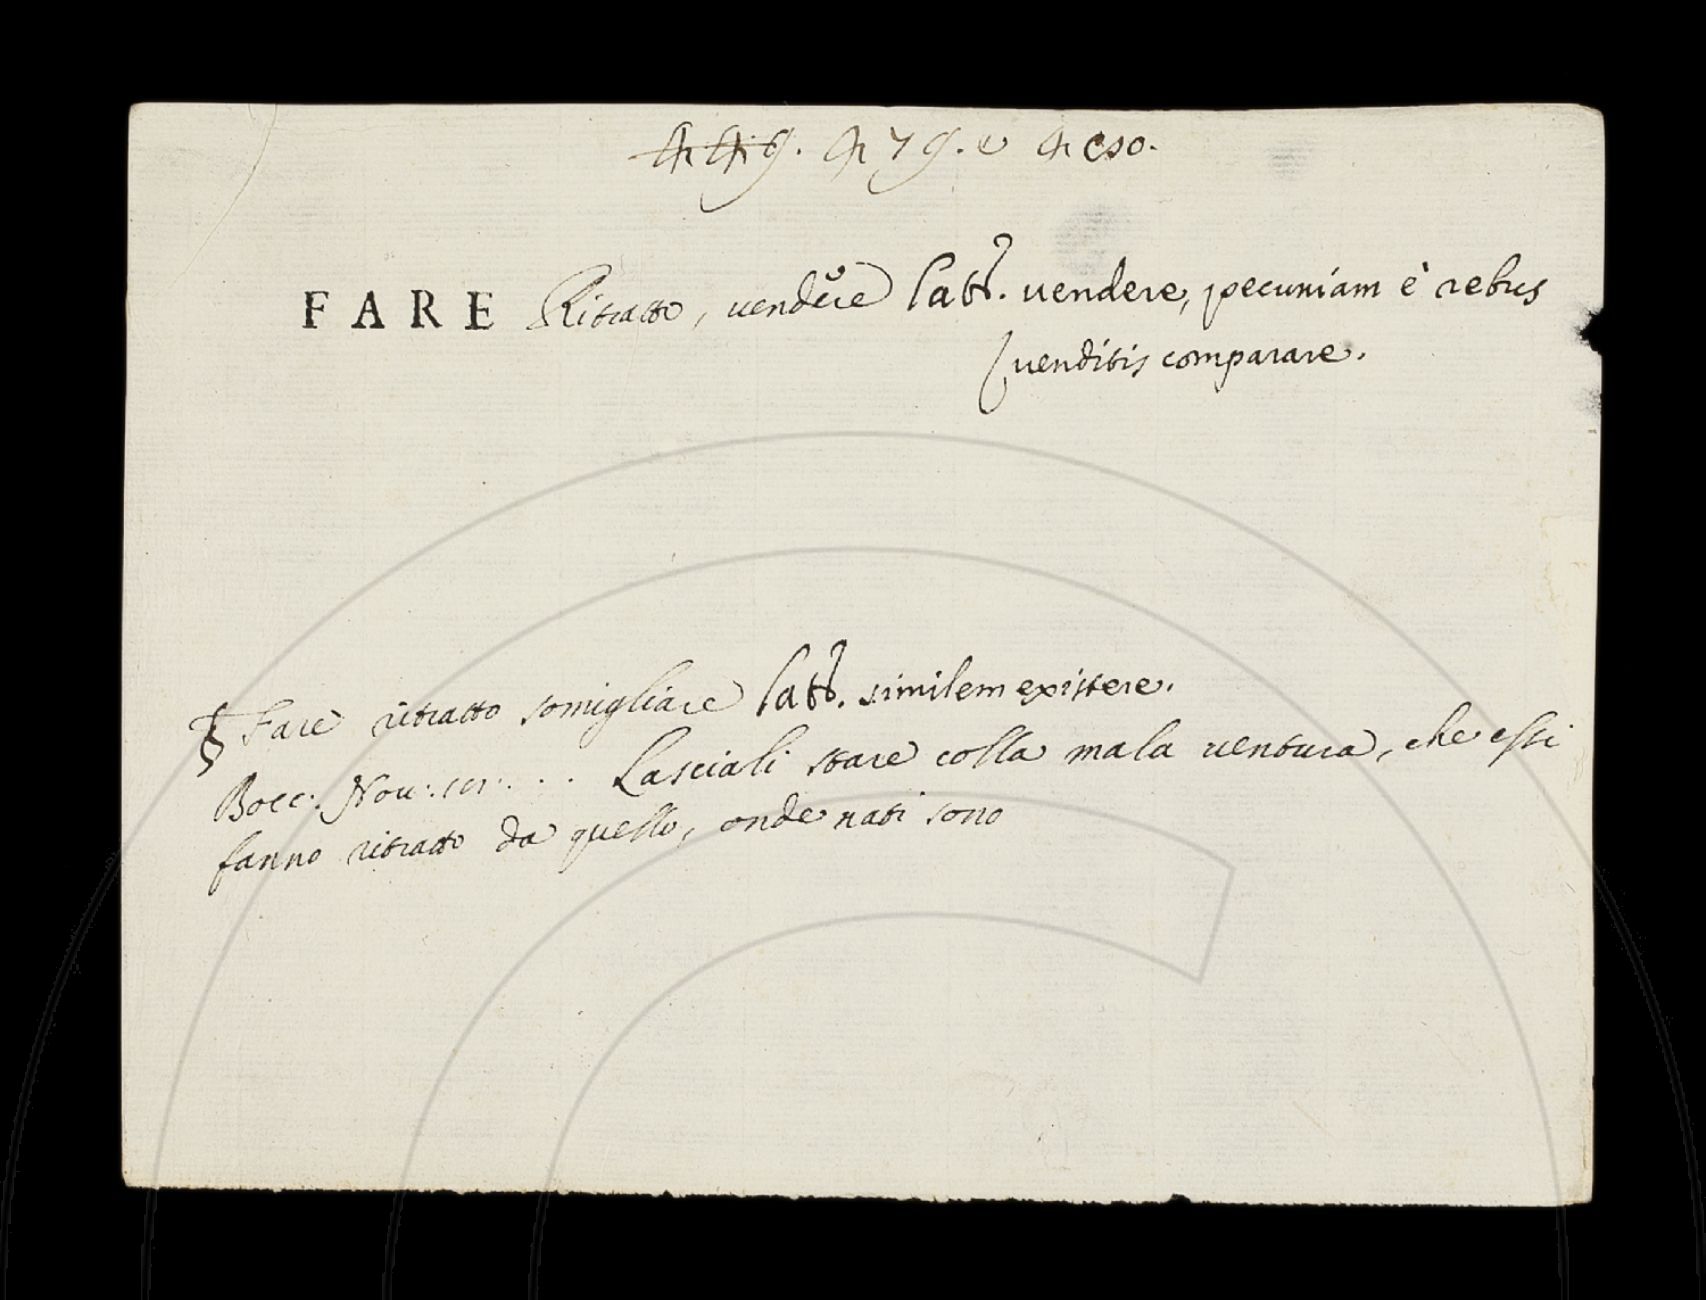 479. e 480.
FARE Ritratto, vendere latt. vendere, pecuniam è rebus
venditis comparare.
§ Fare ritratto somigliare latt. similem existere.
Bocc. Nov: . . . Lasciali stare colla mala ventura, che essi
fanno ritratto da quello, onde nati sono